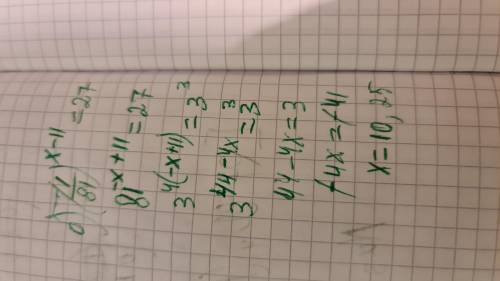 д) (1/81)^x-11 = 27
81^-x+11 = 27
3^4(-x+11) = 3^3
3^44-4x = 3^3
44-4x=3
-4x=-41
x=10,25